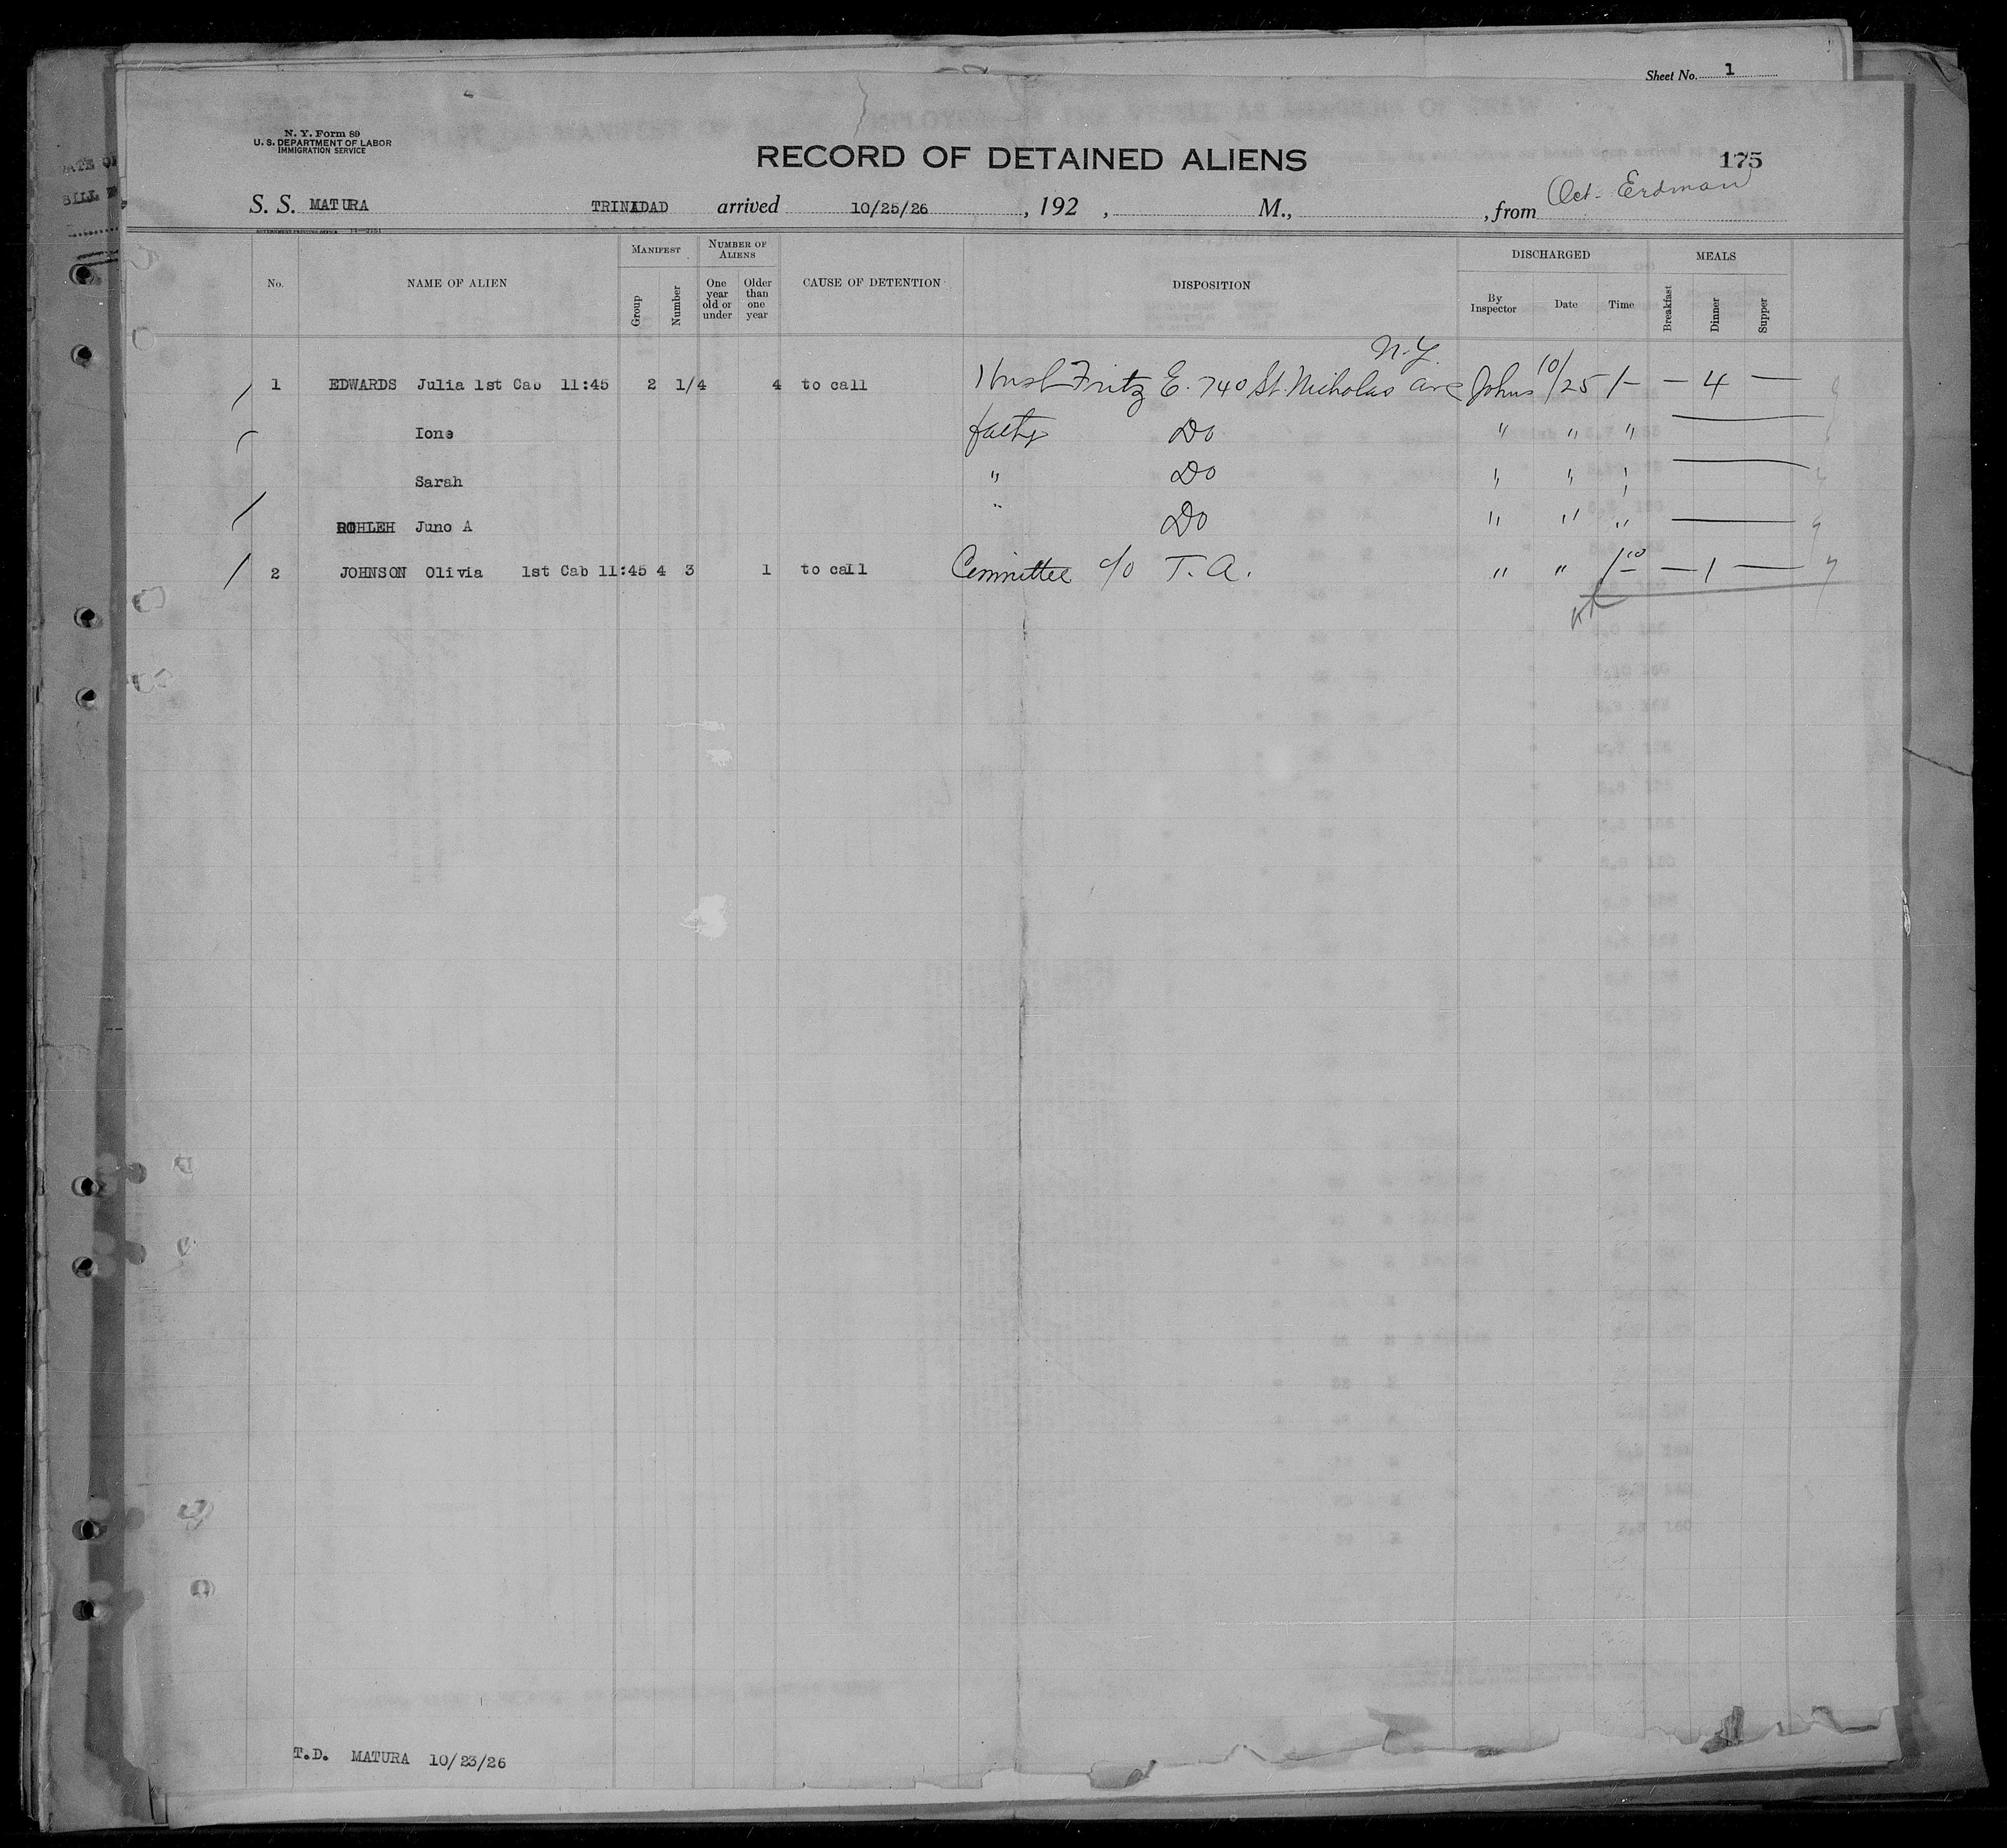 Sheet No. 1
N. Y. Form 89
U. S. DEPARTMENT OF LABOR
IMMIGRATION SERVICE
RECORD OF DETAINED ALIENS
175
Oct. Erdman
S. S. MATURA TRINIDAD arrived 10/25/26, 192 , M., , from
GOVERNMENT PRINTING OFFICE
No. NAME OF ALIEN MANIFEST NUMBER OF ALIENS CAUSE OF DETENTION DISPOSITION DISCHARGED MEALS
Group Number One year old or under Older than one year By Inspector Date Time Breakfast Dinner Supper
N.Y.
1 EDWARDS Julia 1st Cab 11:45 2 1/4 4 to call Husb Fritz E. 740 St. Nicholas ave Johns 10/25 1- — 4 —
Ione Do " " "
Sarah " Do " " "
Juno A " Do " " "
2 JOHNSON Olivia 1st Cab 11:45 4 3 1 to call Committee c/o T. A. " " 1 10 — 1 —
T.D. MATURA 10/23/26